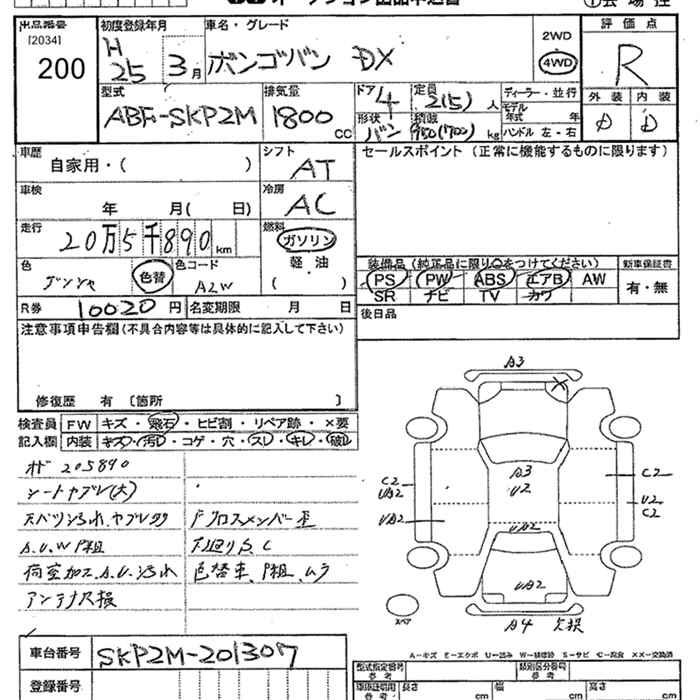 出品番号
[2034]
200
初度登録年月
H 25 3月
車名・グレード
ボンゴバン DX
2WD
4WD
評価点
R
型式
ABF-SKP2M
排気量
1800 CC
ドア
4
形状
バン
定員
2(5)人
積載
950(700)kg
ディーラー・並行
モデル年式 年
ハンドル 左・右
外装 内装
D D
車歴
自家用・( )
シフト
AT
セールスポイント(正常に機能するものに限ります)
車検
年 月( 日)
冷房
AC
走行
20万5千890km
燃料
ガソリン
軽・油
( )
色
色替
色コード
A2W
装備品(純正品に限り○をつけてください)
新車保証書
PS PW ABS エアB AW
有・無
SR ナビ TV カワ
R券 10020円
名変期限 月 日
後日品
注意事項申告欄(不具合内容等は具体的に記入して下さい)
修復歴 有〔箇所 〕
検査員 FW キズ・飛石・ヒビ割・リペア跡・×要
記入欄 内装 キズ・汚れ・コゲ・穴・スレ・キレ・破れ
205890
シートヤブレ(大)
A.U.W P粗
F クロスメンバー歪
下廻りS.C
色替車、P粗、ムラ
アンテナ欠損
A3
A3
U2
C2
UA2
UA2
C2
U2
C2
UA2
UA2
スペア
A4 欠損
車台番号
SKP2M-201307
登録番号
型式指定番号
類別区分番号
長さ cm
幅 cm
高さ cm